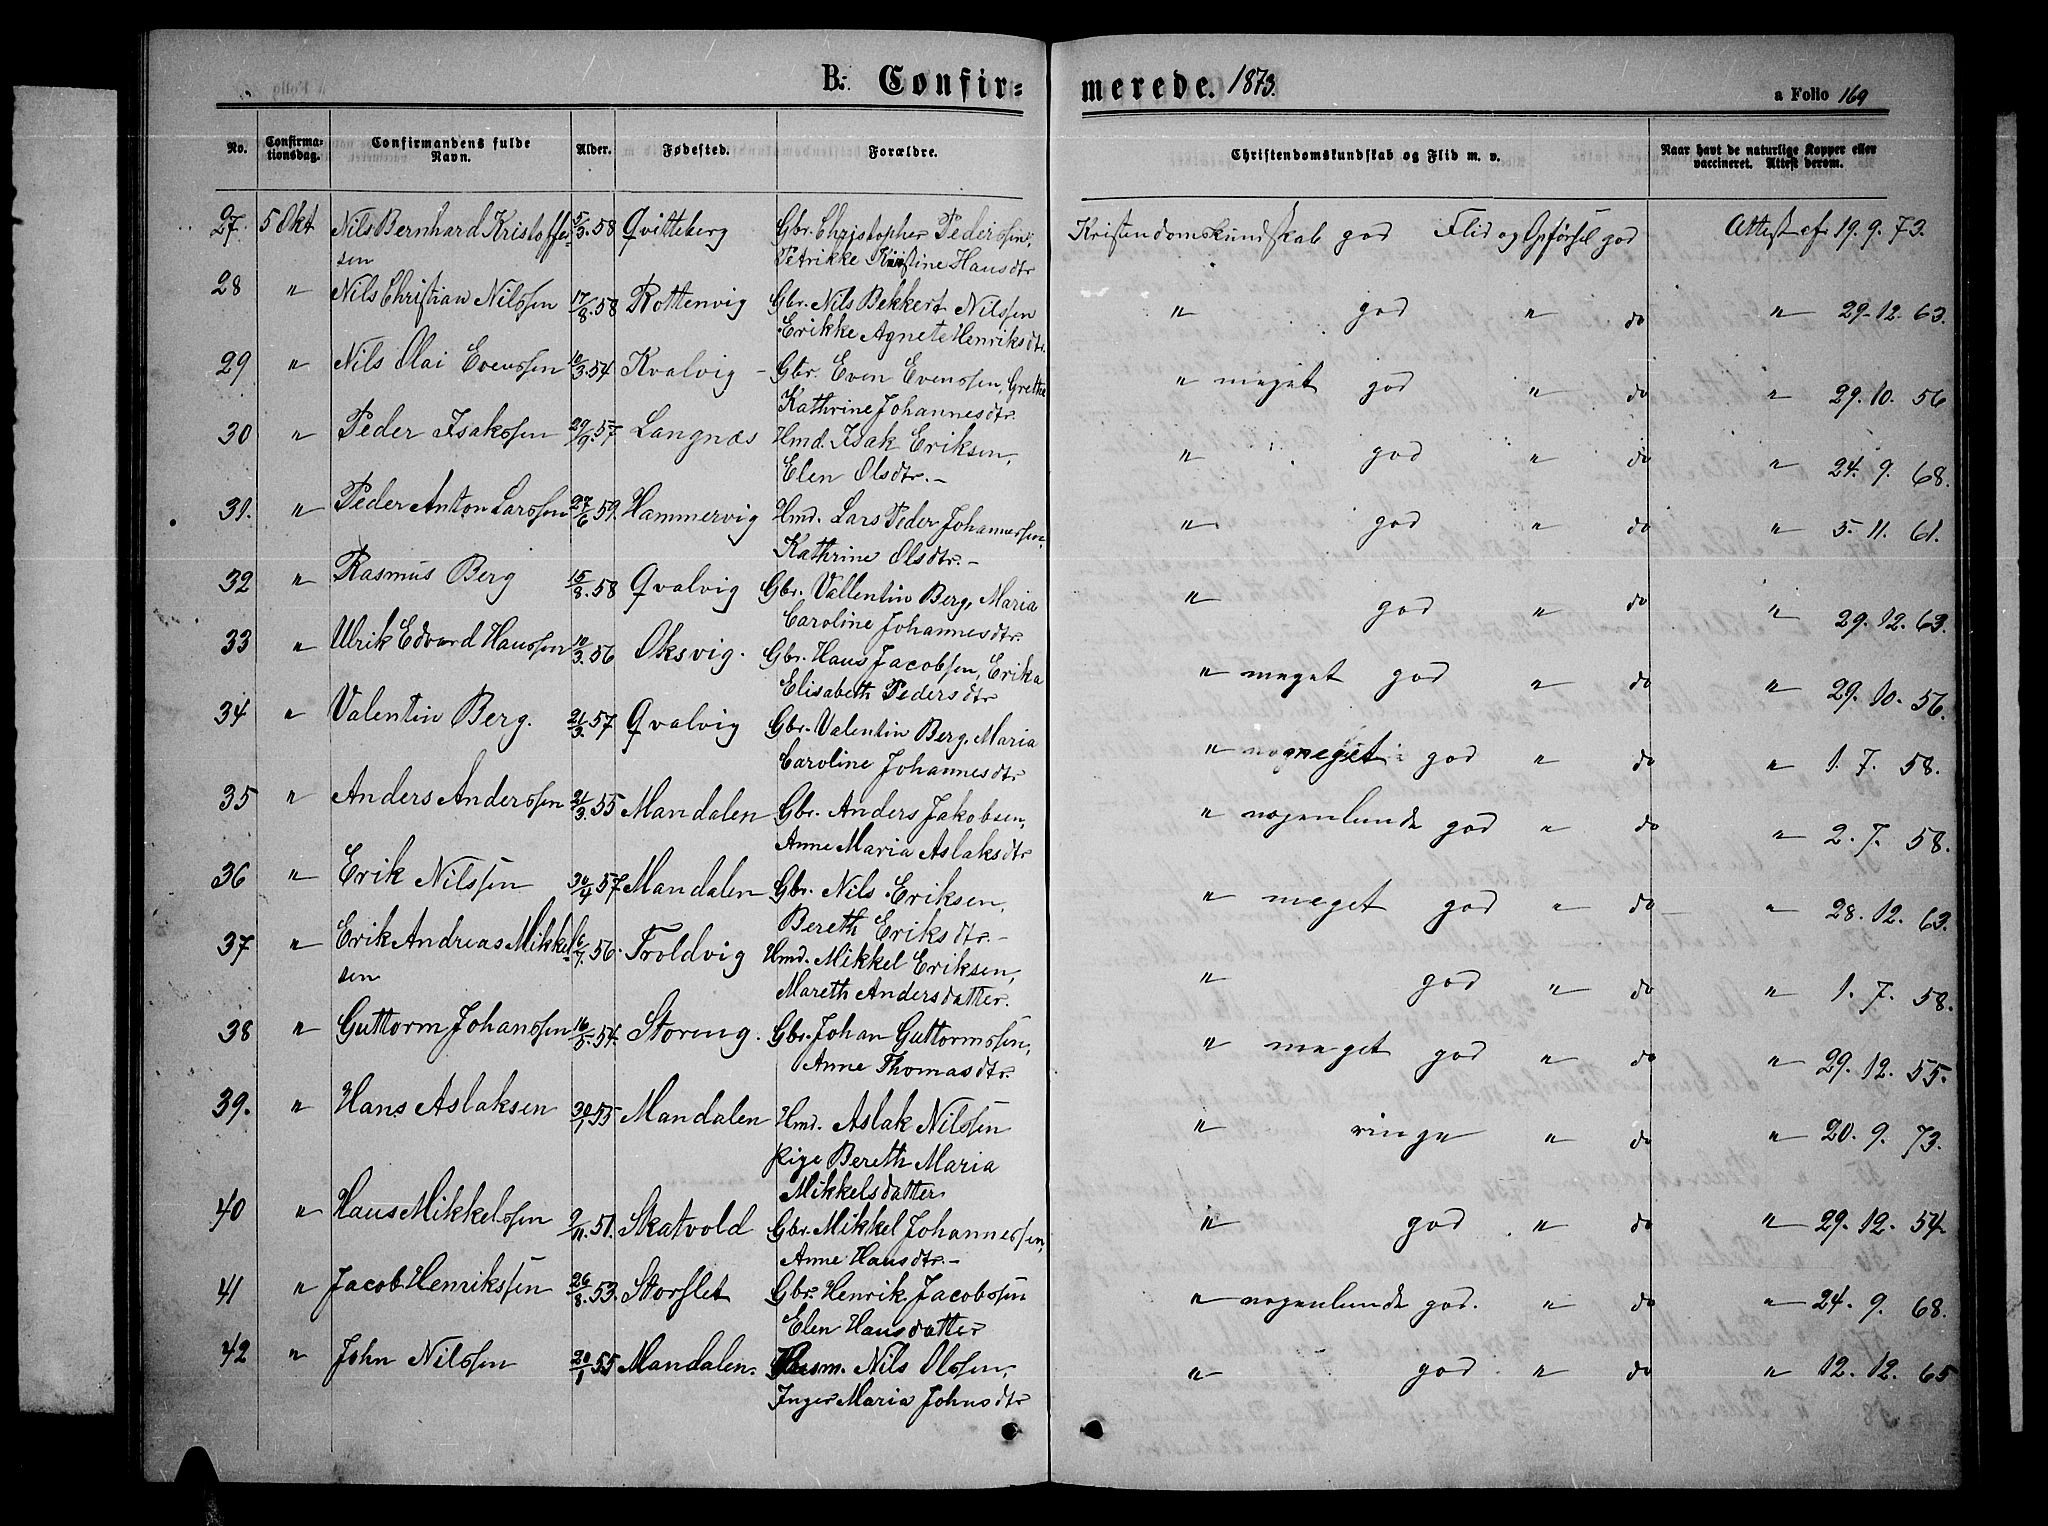 B. Confir=
merede. 1873.
a Folio 169
No. Confirma-tionsdag. Confirmandens fulde Navn. Alder. Fødested. Forældre. Christendomskundskab og Flid m. v. Naar havt de naturlige Kopper eller vaccineret. Attest derom.
27. 5 Okt Nils Bernhard Kristoffer- 5/3.58 Qvitteberg Gbr. Christopher Pederssen, Kristendomskundskab god Flid og Opførsel god Attest af 19.9.73.
sen Petrikke Kristine Hansdtr
28 " Nils Christian Nilssen 17/8.58 Rottenvig Gbr. Nils Bekkert Nilssen " god " do " 29.12.63.
Erikke Agnete Henriksdtr.
29 " Nils Olai Evenssen 10/3.54 Kvalvig - Gbr. Even Evenssen, Grethe " meget god " do " 29.10.56
Kathrine Johannesdtr.
30 " Peder Isakssen 29/9.57. Langnæs Hmd. Isak Eriksen, " god " do " 24.9.68.
Elen Olsdtr. -
31. " Peder Anton Larssen 27/6.59. Hammervig Hmd. Lars Peder Johannessen, " god " do " 5.11.61.
Kathrine Olsdtr. -
32 " Rasmus Berg 15/8.58 Qvalvig Gbr. Vallentin Berg, Maria " god " do " 29.12.63.
Caroline Johannesdtr.
33 " Ulrik Edvard Hanssen 10/3.56 Oksvig. Gbr. Hans Jacobsen, Erika " meget god " do " 29.10.56.
Elisabeth Pedersdtr
34 " Valentin Berg. 21/3.57 Qvalvig Gbr. Valentin Berg, Maria " meget god " do " 1.7.58.
Caroline Johannesdtr
35 " Anders Anderssen 21/3.55 Mandalen Gbr. Anders Jakobsen, " nogenlunde god " do " 2.7.58.
Anne Maria Aslaksdtr
36 " Erik Nilssen 30/4.57 Mandalen Gbr. Nils Eriksen, " meget god " do " 28.12.63.
Bereth Eriksdtr. -
37 " Erik Andreas Mikkel- 6/7.56. Troldvig Hmd. Mikkel Eriksen, " god " do " 1.7.58.
sen Mareth Andersdatter.
38 " Guttorm Johanssen 16/5.54. Storeng. Gbr. Johan Guttormssen, " meget god " do " 29.12.55.
Anne Thomasdtr.
39. " Hans Aslaksen 30/1.55 Mandalen Hmd. Aslak Nilssen " ringe " do " 20.9.73.
pige Bereth Maria
Mikkelsdatter
40 " Hans Mikkelssen 9/11.51. Skatvold Gbr. Mikkel Johannessen, " god " do " 29.12.54
Anne Hansdtr. -
41 " Jacob Henrikssen 26/8.53. Storslet Gbr. Henrik Jacobssen " nogenlunde god. " do " 24.9.68.
Elen Hansdatter
42 " John Nilssen 20/1.55 Mandalen. Husm. Nils Olssen, " god " do " 12.12.65
Inger Maria Johnsdtr